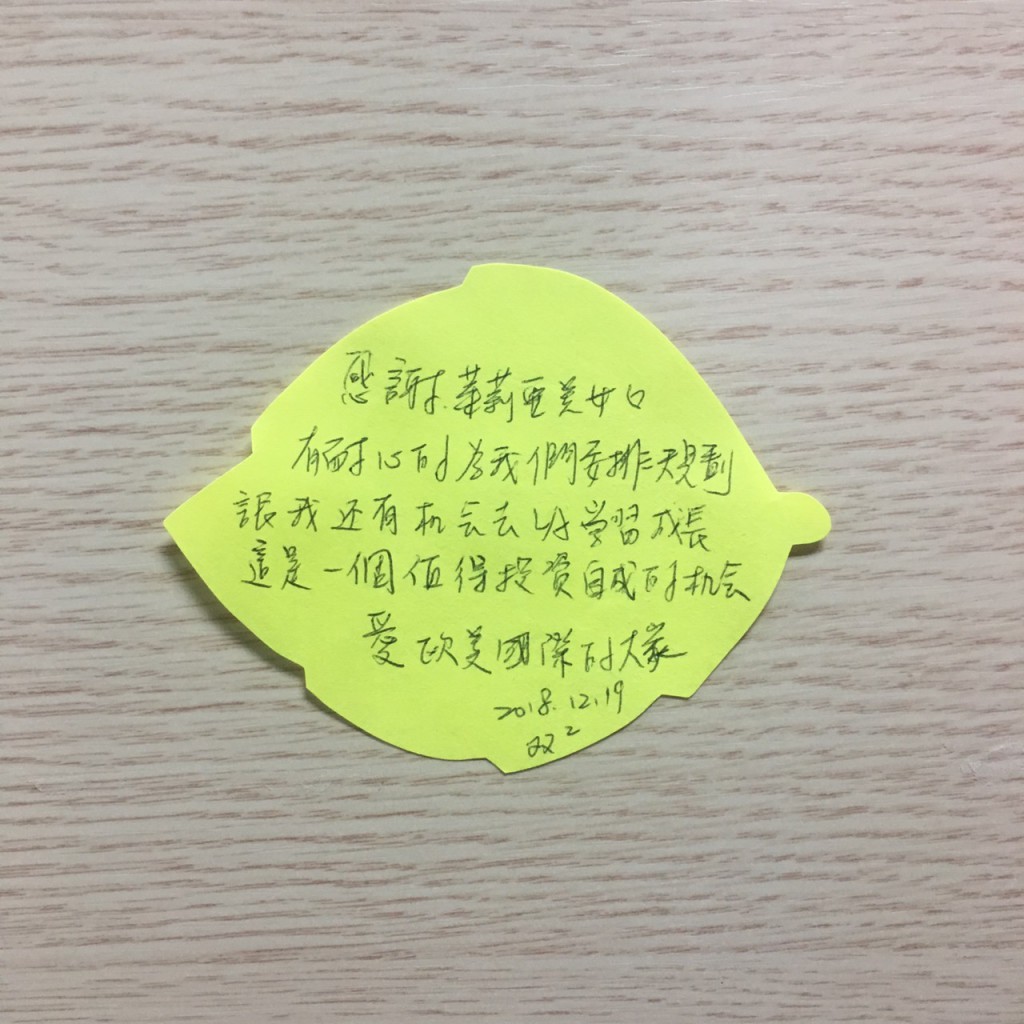 感謝茱莉亞美女口
有耐心的為我們安排規劃
讓我还有机会去好学習成長
這是一個值得投資自我的机会
愛歐美國際的大家
2018.12.19
双²